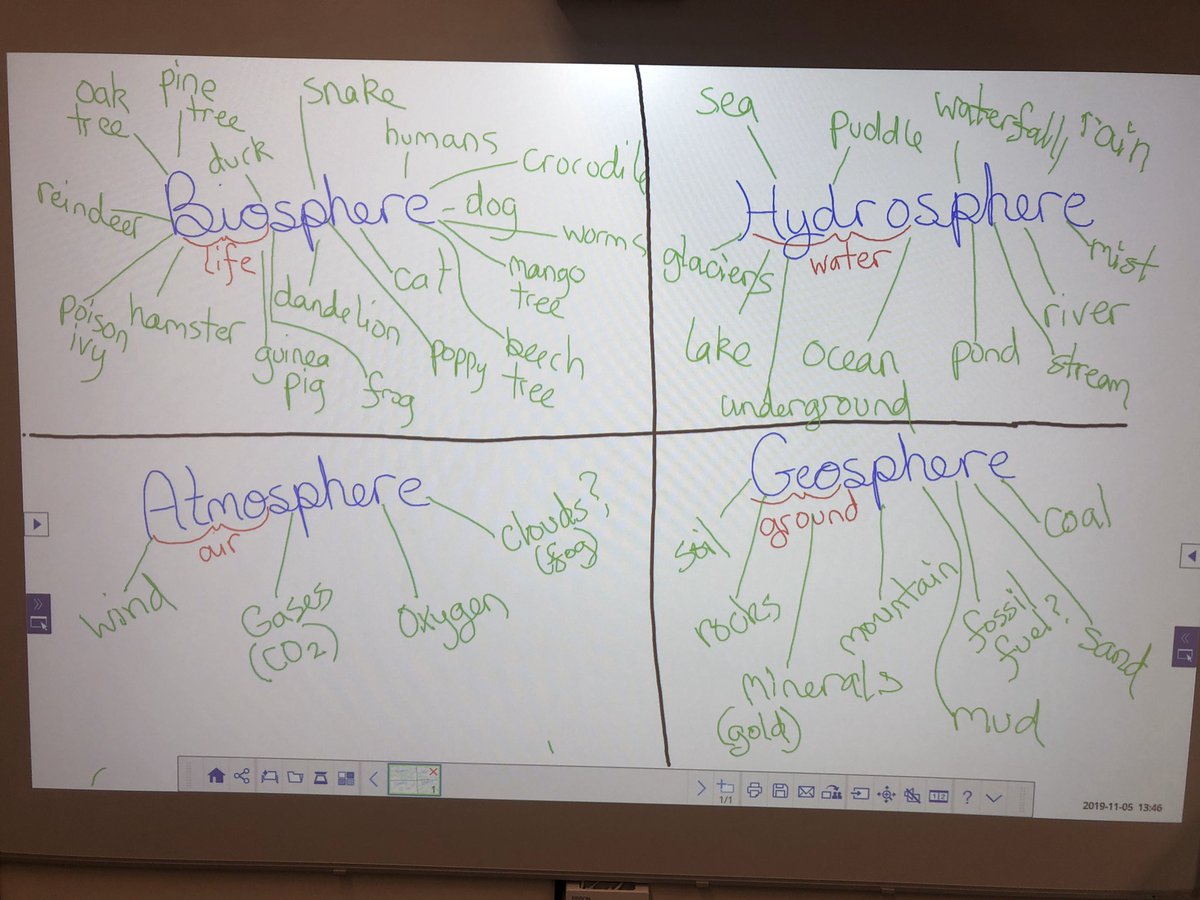 oak
tree
pine
tree
duck
snake
humans
crocodile
reindeer
Biosphere
life
dog
worms
mango
tree
cat
dandelion
poison
ivy
hamster
guinea
pig
frog
poppy
beech
tree
sea
puddle
waterfall
rain
Hydrosphere
water
glaciers
mist
lake
ocean
pond
river
stream
underground
Atmosphere
air
wind
Gases
(CO2)
Oxygen
clouds?
(fog)
Geosphere
ground
soil
rocks
minerals
(gold)
mountain
mud
fossil
fuel?
sand
coal
1
1/1
1 2
?
2019-11-05 13:46